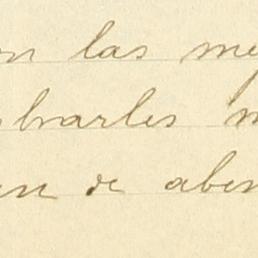 on las me
brarles m
en de aben